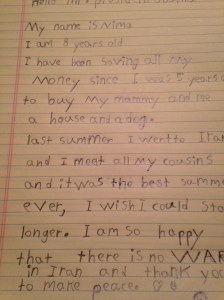 Hello Mr President Obama
My name is Nima
I am 8 years old
I have been saving all my
money since I was 5 years
to buy my mommy and me
a house and a dog.
last summer I went to Iran
and I ment all my cousins
and it was the best summe
ever, I wish I could sta
longer. I am so happy
that there is no WAR
in Iran and thank you
to make peace.